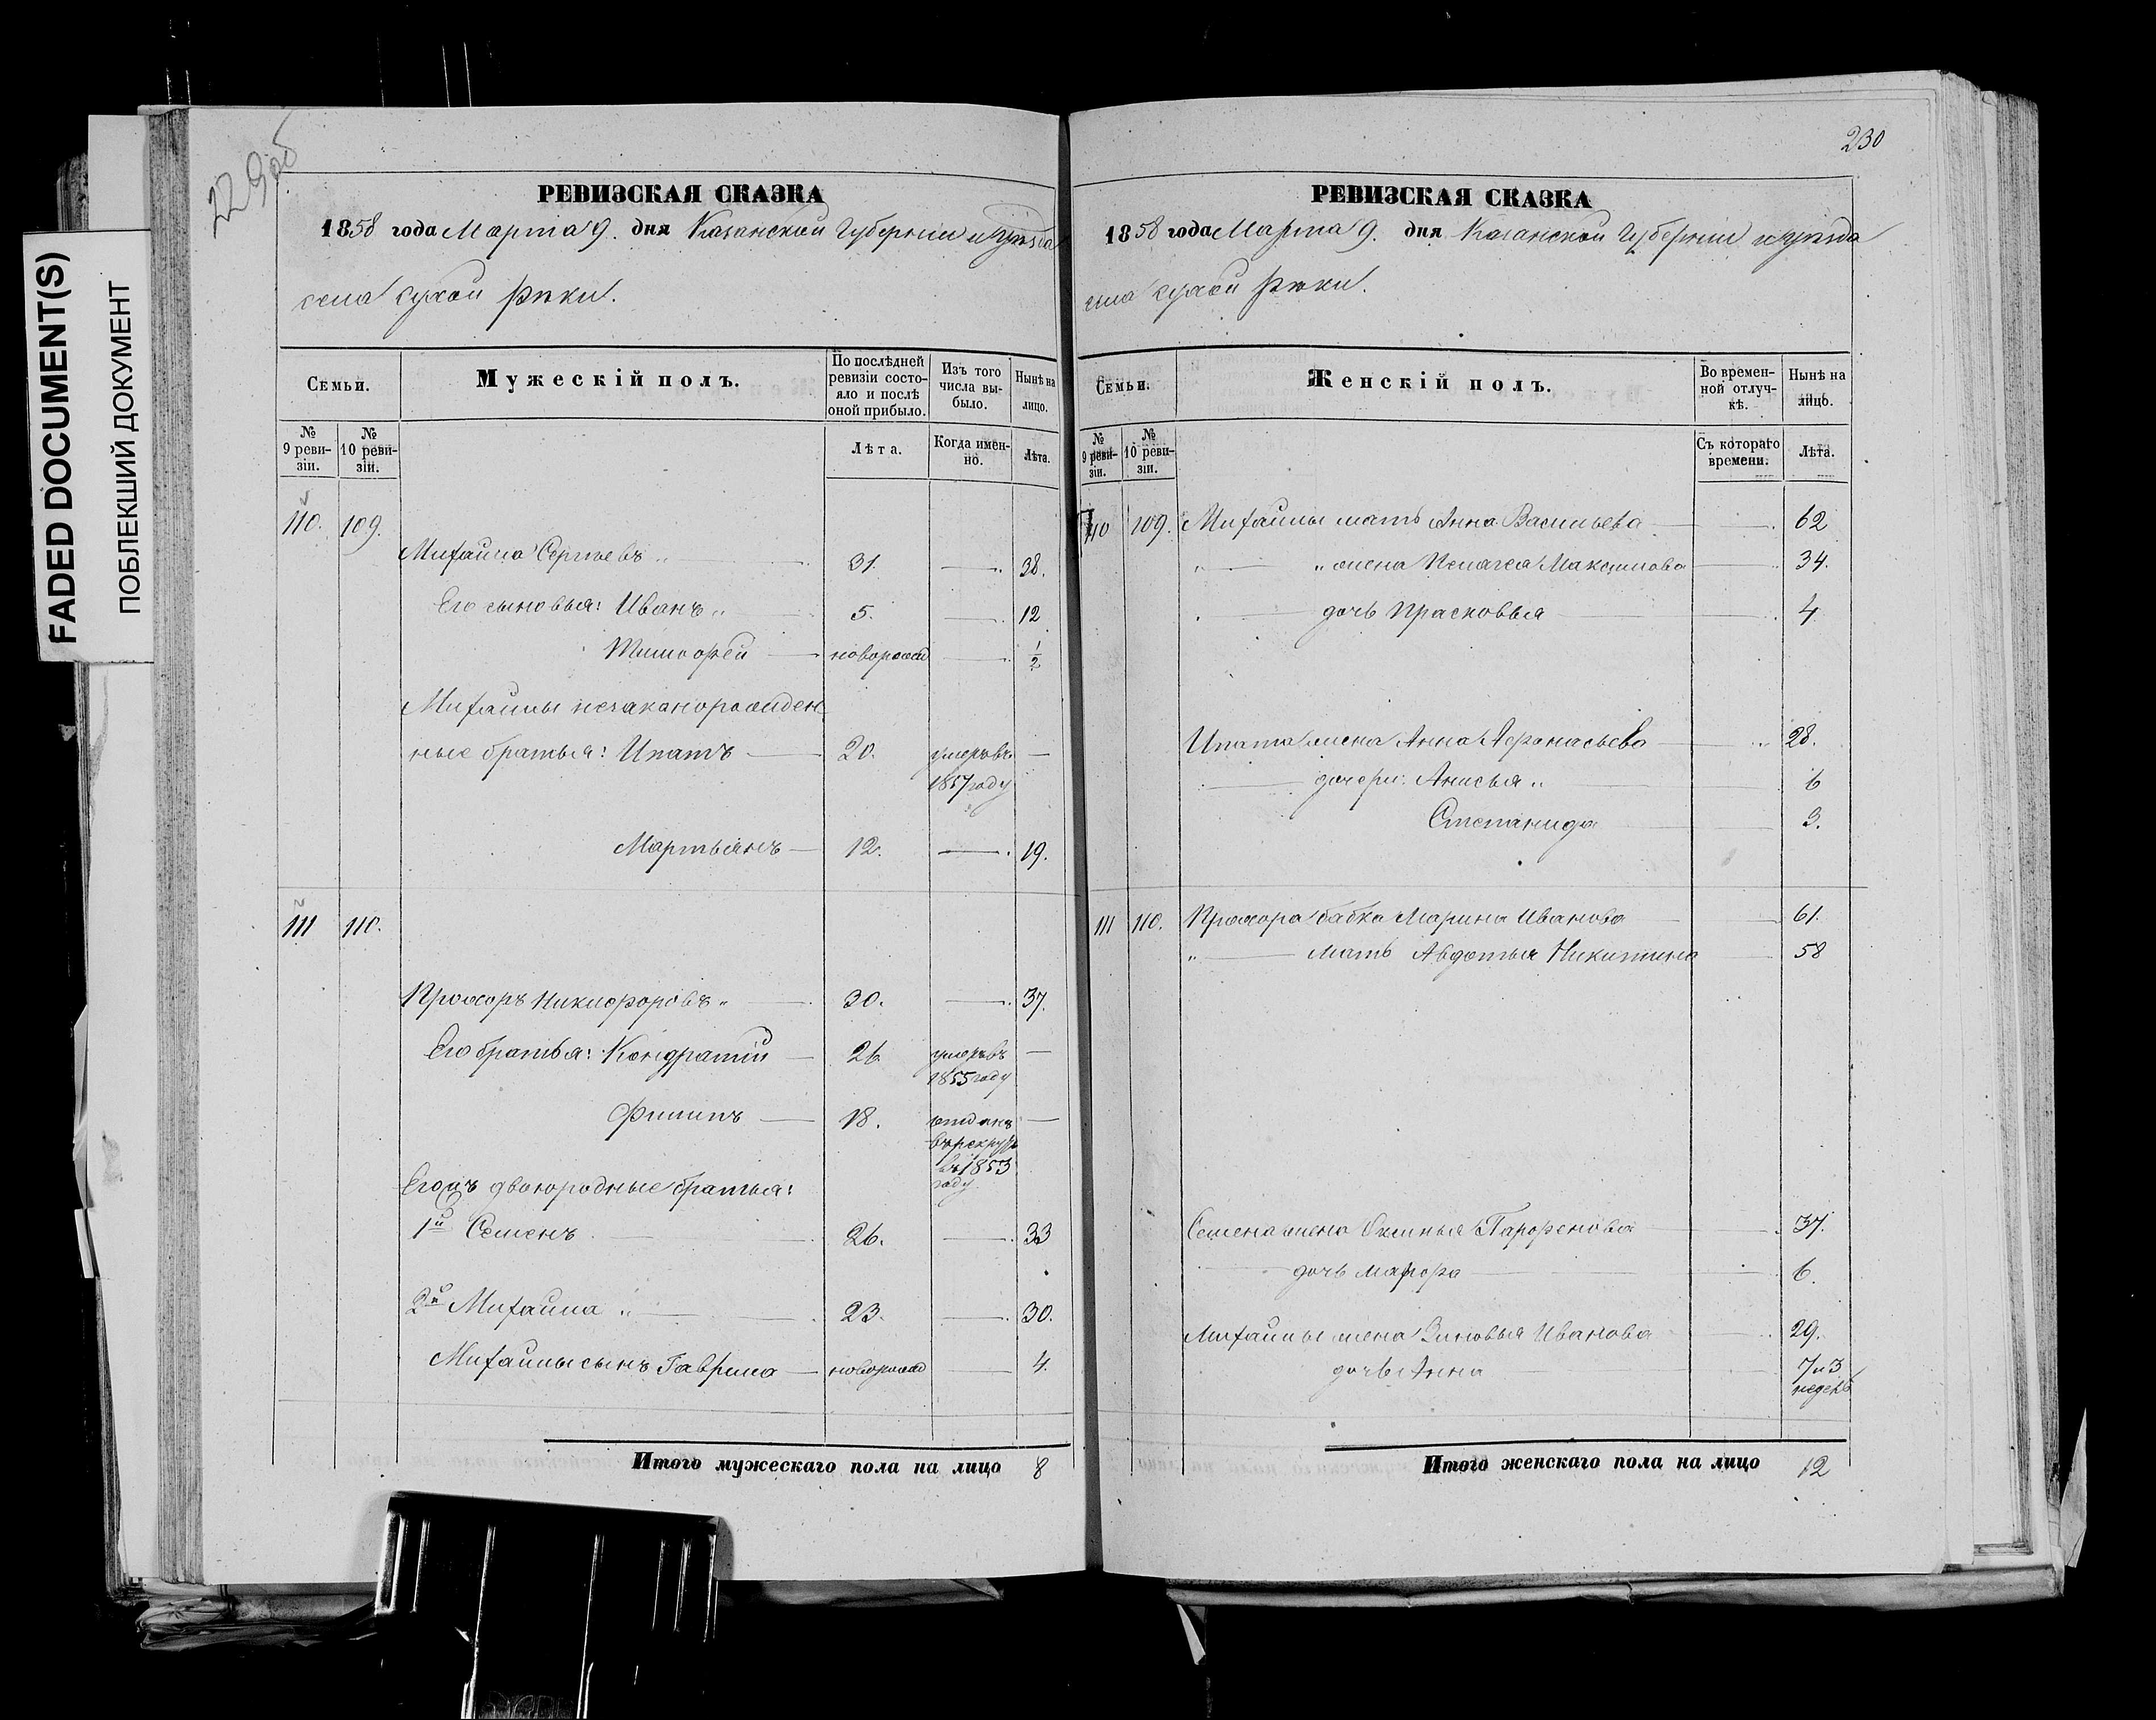 FADED DOCUMENT(S)
ПОБЛЕКШИЙ ДОКУМЕНТ
229об
РЕВИЗСКАЯ СКАЗКА
1858 года Марта 9. дня Казанской Губернии и уѣзда
села Сухой Рѣки.
Семьи.
Мужескій полъ.
По послѣдней ревизіи состояло и послѣ оной прибыло.
Изъ того числа выбыло.
Нынѣ на лицо.
№ 9 ревизіи.
№ 10 ревизіи.
Лѣта.
Когда именно.
Лѣта.
110. 109.
Михайла Сергѣевъ 31. 38.
Его сыновья: Иванъ 5. 12
Тимофей новорожд 1/2
Михайлы незаконорожден
ные братья: Ипатъ 20. умеръ въ 1857 году
Мартьянъ 12. 19.
111 110.
Прохоръ Никифоровъ 30. 37.
Его братья: Кондратий 26 умеръ въ 1855 году
Филипъ 18. отданъ въ рекруты въ 1853 году
двоюродные братья:
1й Семенъ 26. 33
2й Михайла 23. 30.
Михайлы сынъ Гаврила новорожд 4.
Итого мужескаго пола на лицо 8
230
РЕВИЗСКАЯ СКАЗКА
1858 года Марта 9. дня Казанской Губернии и уѣзда
села Сухой Рѣки.
Семьи.
Женскій полъ.
Во временной отлучкѣ.
Нынѣ на лицо.
№ 9 ревизіи.
№ 10 ревизіи.
Съ котораго времени.
Лѣта.
110 109. Михайлы мать Анна Васильева 62
" жена Пелагея Максимова 34.
дочь Прасковья 4
Ипата жена Анна Афонасьева 28.
дочери: Анисья 6
Степанида 3.
111 110. Прохора бабка Марина Иванова 61.
" мать Авдотья Никитина 58
Семена жена Парфенова 37.
дочь Марфа 6.
Михайлы жена Зиновья Иванова 29.
дочь Анна 7 и 3 недель
Итого женскаго пола на лицо 12